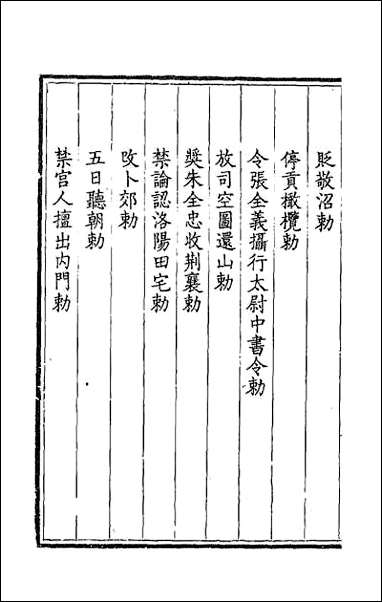 貶敬沼勅
停貢橄欖勅
令張全義攝行太尉中書令勅
放司空圖還山勅
奬朱全忠收荆襄勅
禁論認洛陽田宅勅
攺卜郊勅
五日聽朝勅
禁宫人擅出内門勅